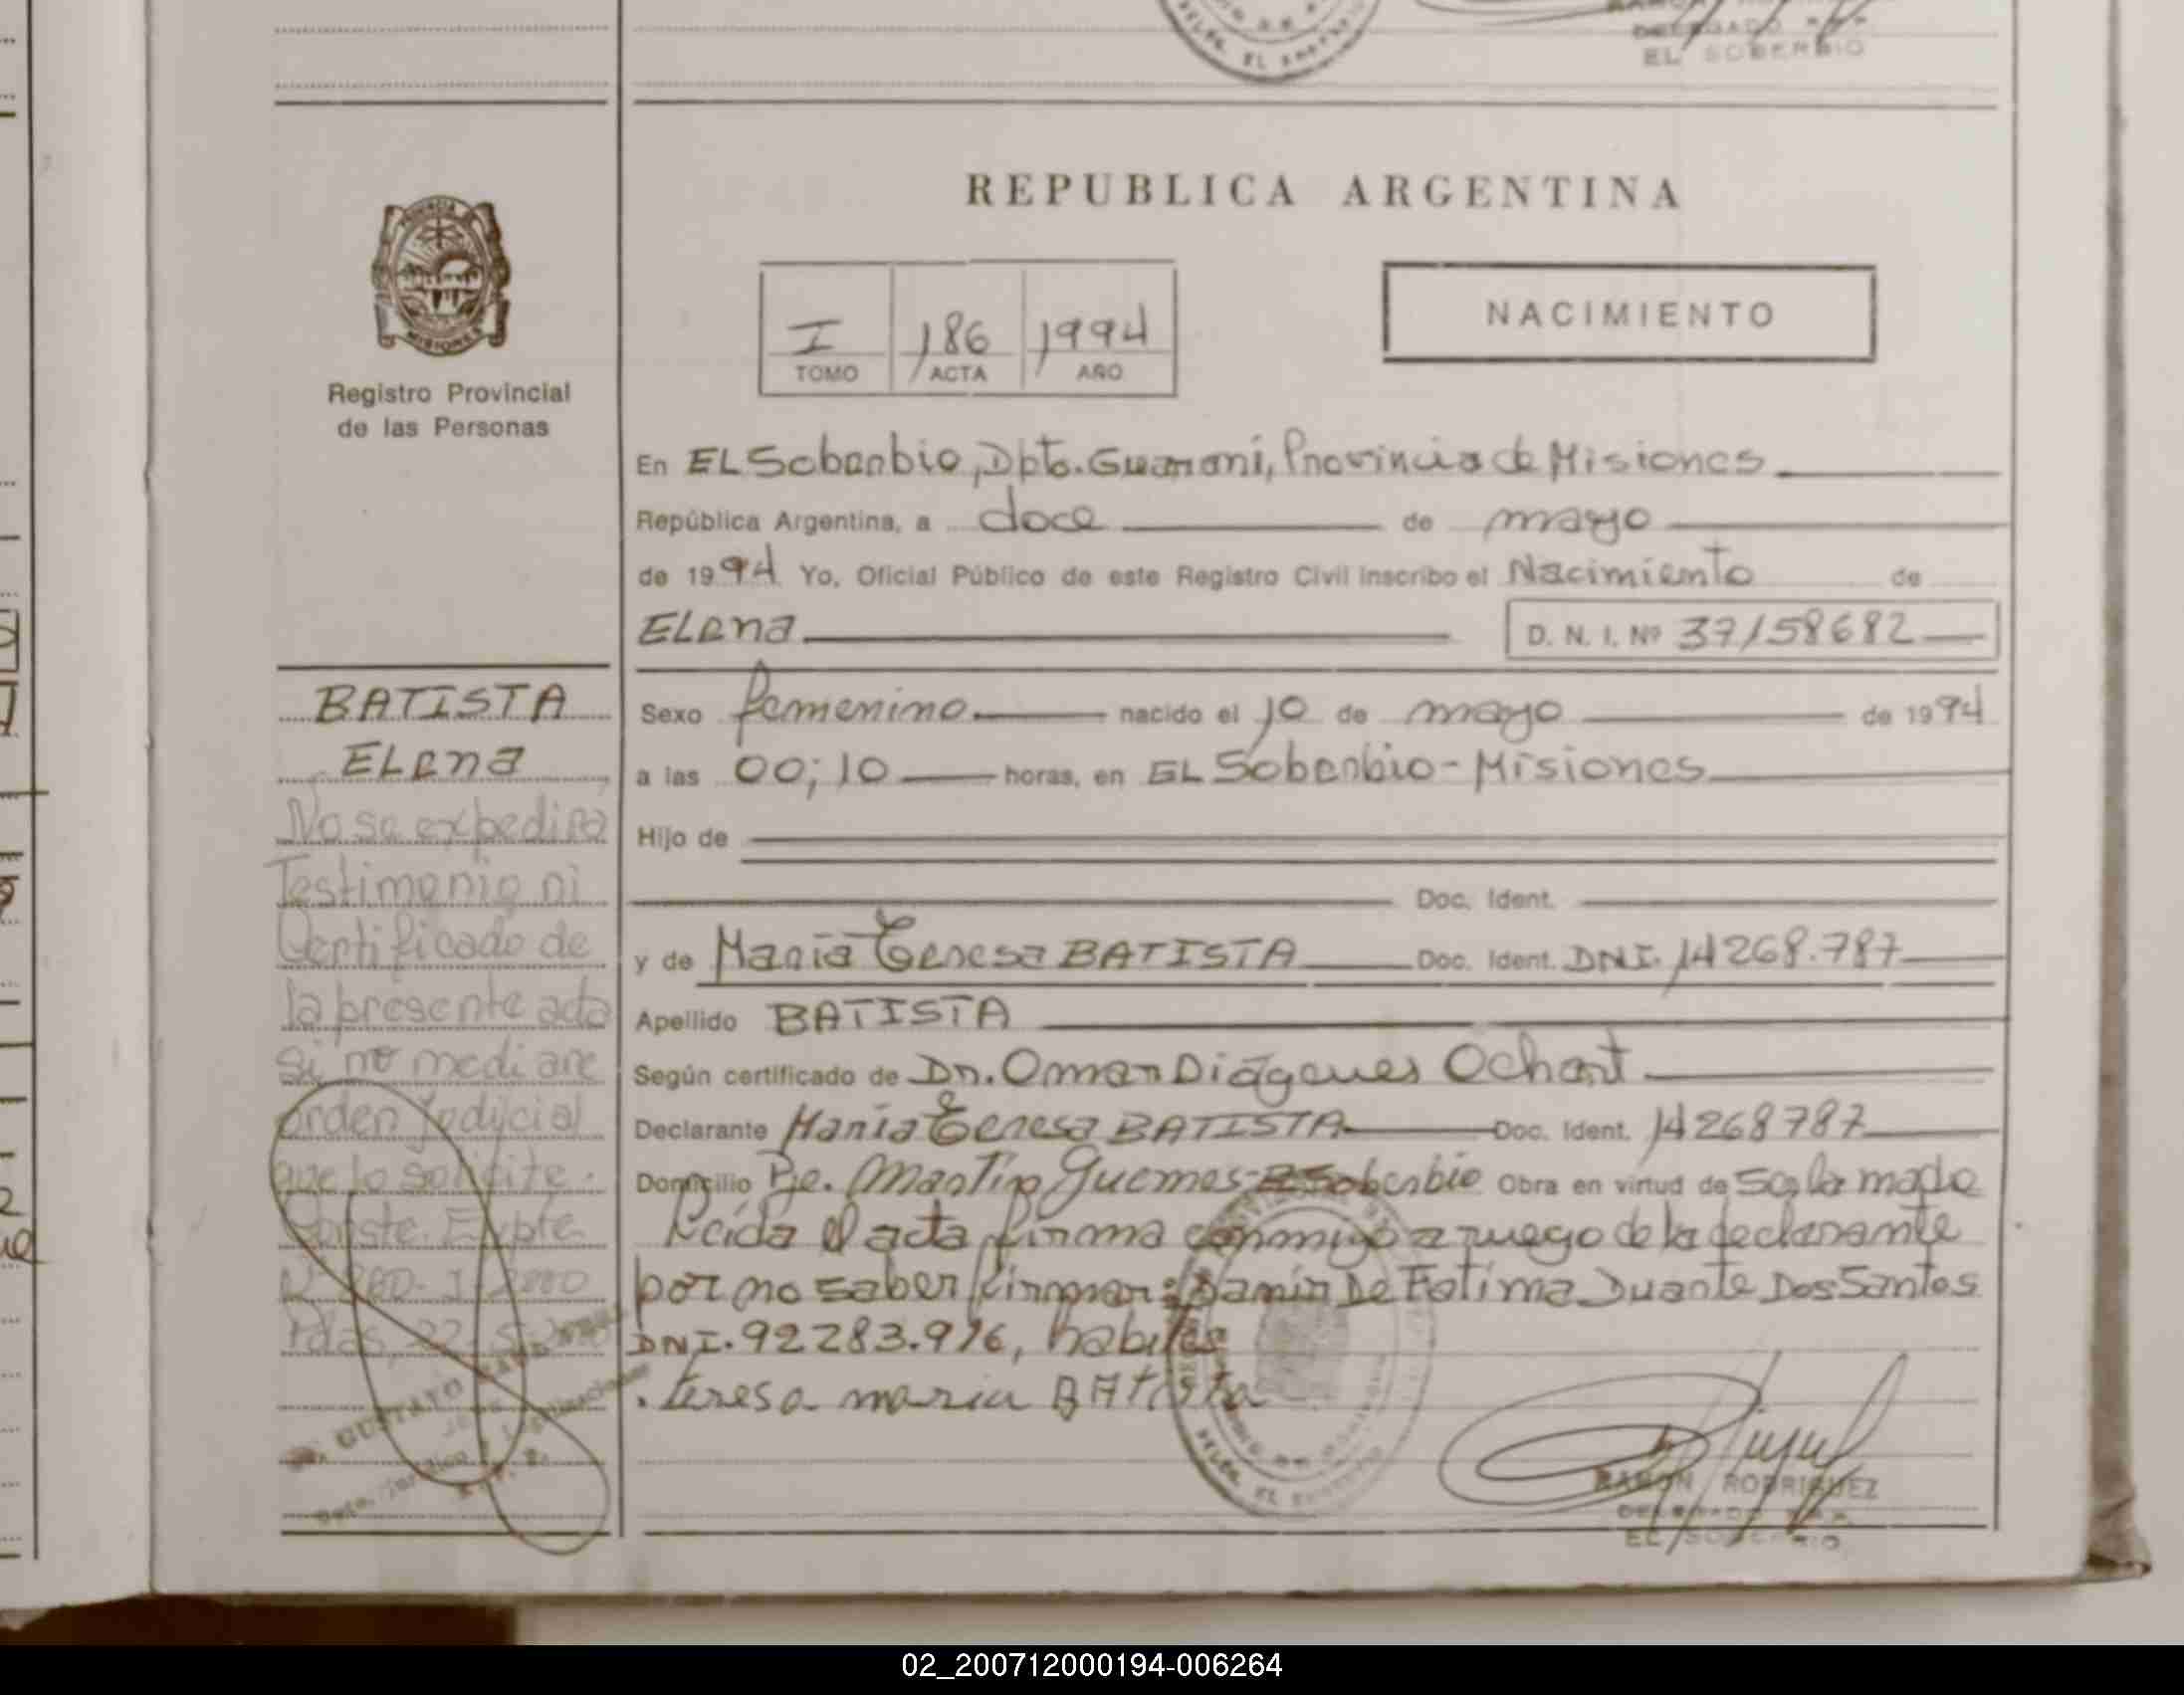 EL SOBERBIO
REPUBLICA ARGENTINA
I 186 1994
TOMO ACTA AÑO
NACIMIENTO
Registro Provincial
de las Personas
En EL Soberbio, Dpto. Guaraní, Provincia de Misiones
República Argentina, a doce de mayo
de 1994 Yo, Oficial Público de este Registro Civil inscribo el Nacimiento de
ELena D. N. I. Nº 37158682
BATISTA
ELena
No se expedira
Testimonio ni
Certificado de
la presente acta
si no mediare
orden Judicial
que lo solicite.
Conste. Expte
Sexo femenino nacido el 10 de mayo de 1994
a las 00;10 horas, en EL Soberbio - Misiones
Hijo de
Doc. Ident.
y de María Teresa BATISTA Doc. Ident. DNI. 14268.787
Apellido BATISTA
Según certificado de Dr. Omar Diógenes Ochart
Declarante María Teresa BATISTA Doc. Ident. 14268787
Domicilio Pje. Martin Guemes - El Soberbio Obra en virtud de ser la madre
Leída el acta firma conmigo a ruego de la declarante
por no saber firmar: De Fatima Duarte Dos Santos
DNI. 92283.916, habiles
. teresa maria BAtista
RAMON RODRIGUEZ
EL SOBERBIO
02_200712000194-006264